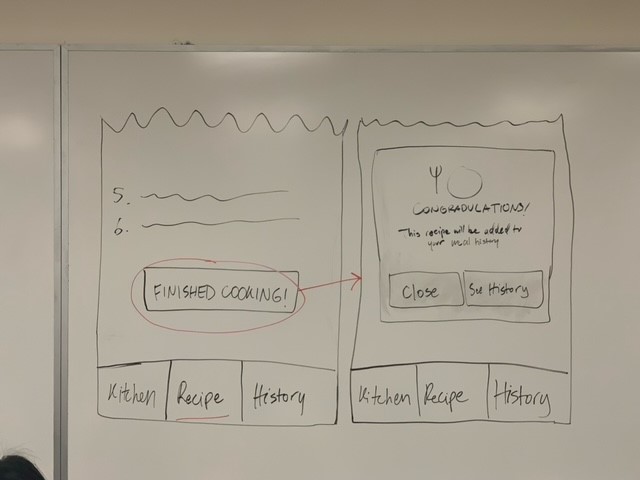 5.
6.
FINISHED COOKING!
Kitchen Recipe History
CONGRADULATIONS!
This recipe will be added to
your meal history
Close See History
Kitchen Recipe History